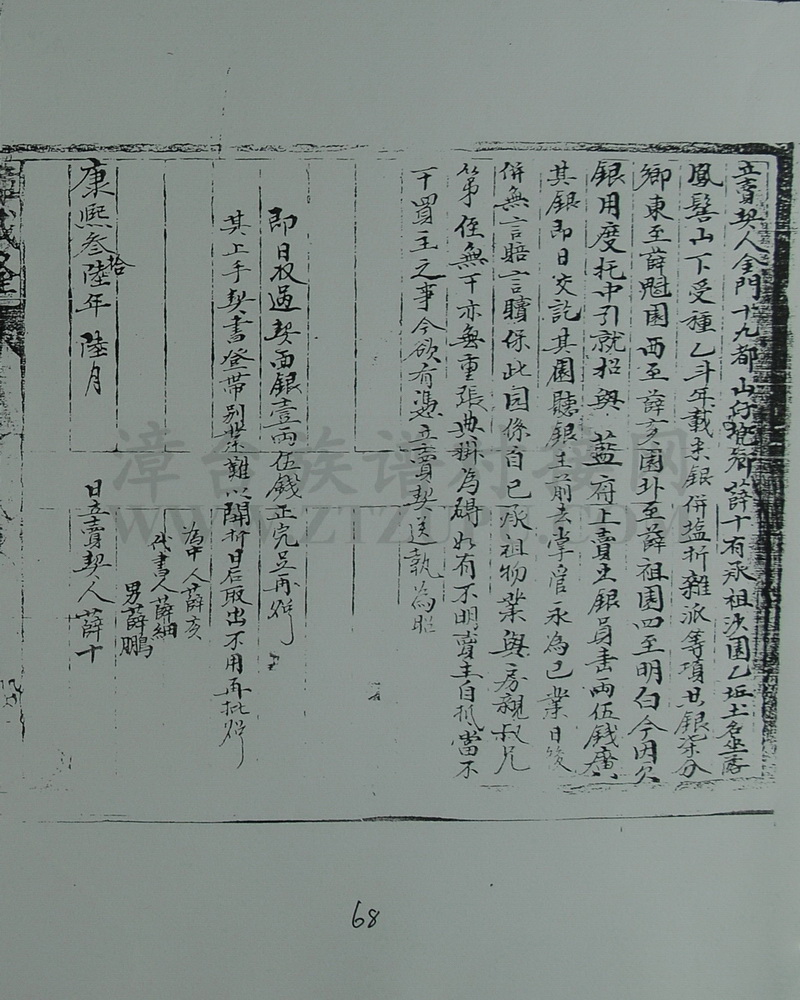 立賣契人金門十九都山仔兜鄉薛十有承祖浹園乙坵土名坐落
鳳髻山下受種乙斗年載米銀併塩折雜派等項共銀柒分
鄉東至薛魁園西至薛亥園北至薛祖園四至明白今因欠
銀用度托中引就招與 藍府上賣出銀員壹兩伍錢廣
其銀即日交訖其園聽銀主前去掌管永為己業日後
併無言賠言贖保此園係自己承祖物業與房親叔兄
第侄無干亦無重張典掛為碍如有不明賣主自抵當不
干買主之事今欲有憑立賣契送執為照
即日收過契面銀壹兩伍錢正完足再炤
其上手契書登帶別業難以開折日后取出不用再批炤
為中人薛亥
代書人薛細
男薛鵬
康熙叁拾陸年陸月 日立賣契人薛十
漳台族谱对接网
68